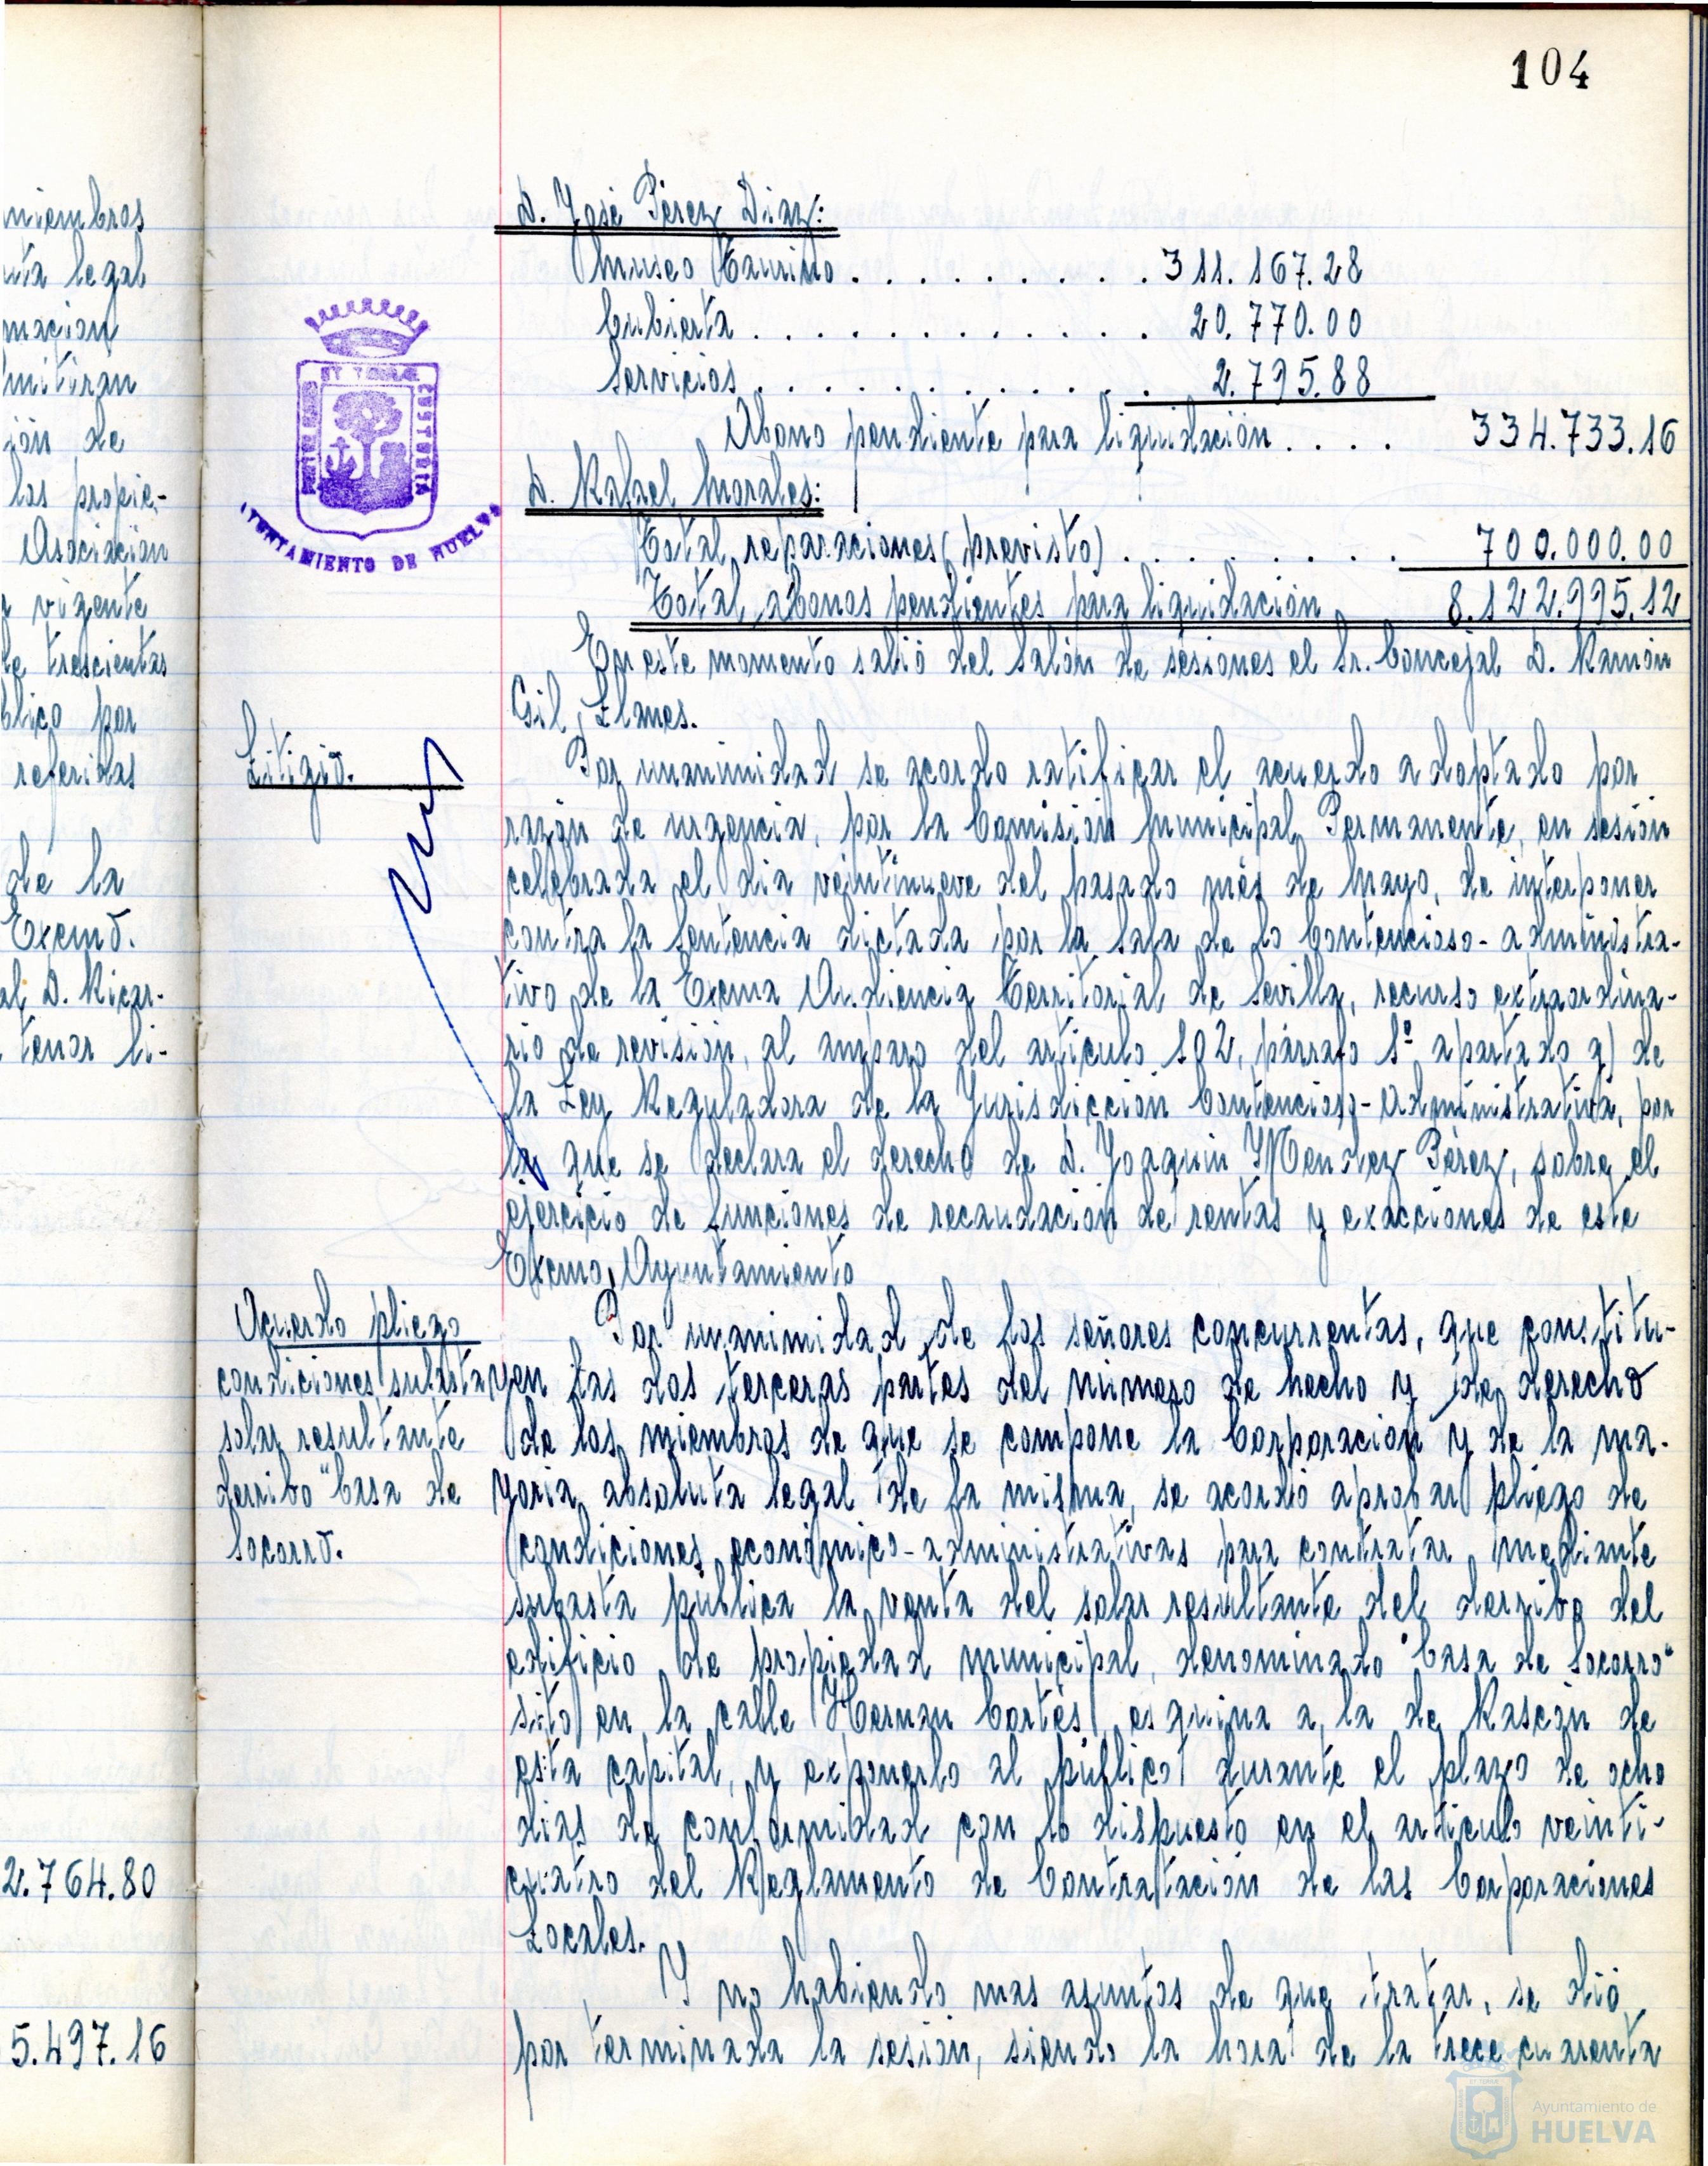 104
miembros
uta legal
mación
mitiran
ión de
las propie-
Asociación
r vigente
de trescientas
blico por
referidas
de la
Excmo.
al D. Ricar-
tenor li-
2.764.80
5.497.16
D. José Pérez Diaz:
Museo Taurino . . . . . . . . . 311.167.28
Cubierta . . . . . . . . . . . . 20.770.00
Servicios . . . . . . . . . . . . 2.795.88
Abono pendiente para liquidación . . . . 334.733.16
D. Rafael Morales:
Total reparaciones (previsto) . . . . . . . . 700.000.00
Total abonos pendientes para liquidación 8.122.995.12
AYUNTAMIENTO DE HUELVA
En este momento salió del Salón de sesiones el Sr. Concejal D. Ramón
Gil Llanes.
Litigio.
Por unanimidad se acordo ratificar el acuerdo adoptado por
razón de urgencia, por la Comisión Municipal Permanente, en sesión
celebrada el dia veintinueve del pasado més de Mayo, de interponer
contra la Sentencia dictada por la sala de lo Contencioso-administra-
tivo de la Excma Audiencia Territorial de Sevilla, recurso extraordina-
rio de revisión, al amparo del articulo 102, párrafo 1º apartado a) de
la Ley Reguladora de la Jurisdicción Contencioso-Administrativa, por
la que se declara el derecho de D. Joaquin Mendez Pérez, sobre el
ejercicio de funciones de recaudación de rentas y exacciones de este
Excmo. Ayuntamiento
Acuerdo pliego
condiciones subasta
solar resultante
derribo "Casa de
Socorro.
Por unanimidad de los señores concurrentas, que constitu-
yen las dos terceras partes del número de hecho y de derecho
de los miembros de que se compone la Corporación y de la ma-
yoria absoluta legal de la misma, se acordió aprobar pliego de
condiciones económico-administrativas para contratar mediante
subasta pública la venta del solar resultante del derribo del
edificio de propiedad municipal, denominado "Casa de Socorro"
sito en la calle Hernan Cortés, esquina a la de Rascón de
esta capital, y exponerlo al público durante el plazo de ocho
dias de conformidad con lo dispuesto en el articulo veinti-
cuatro del Reglamento de Contratación de las Corporaciones
Locales.
Y no habiendo mas asuntos de que tratar, se dió
por terminada la sesión, siendo la hora de la trece cuarenta
Ayuntamiento de
HUELVA